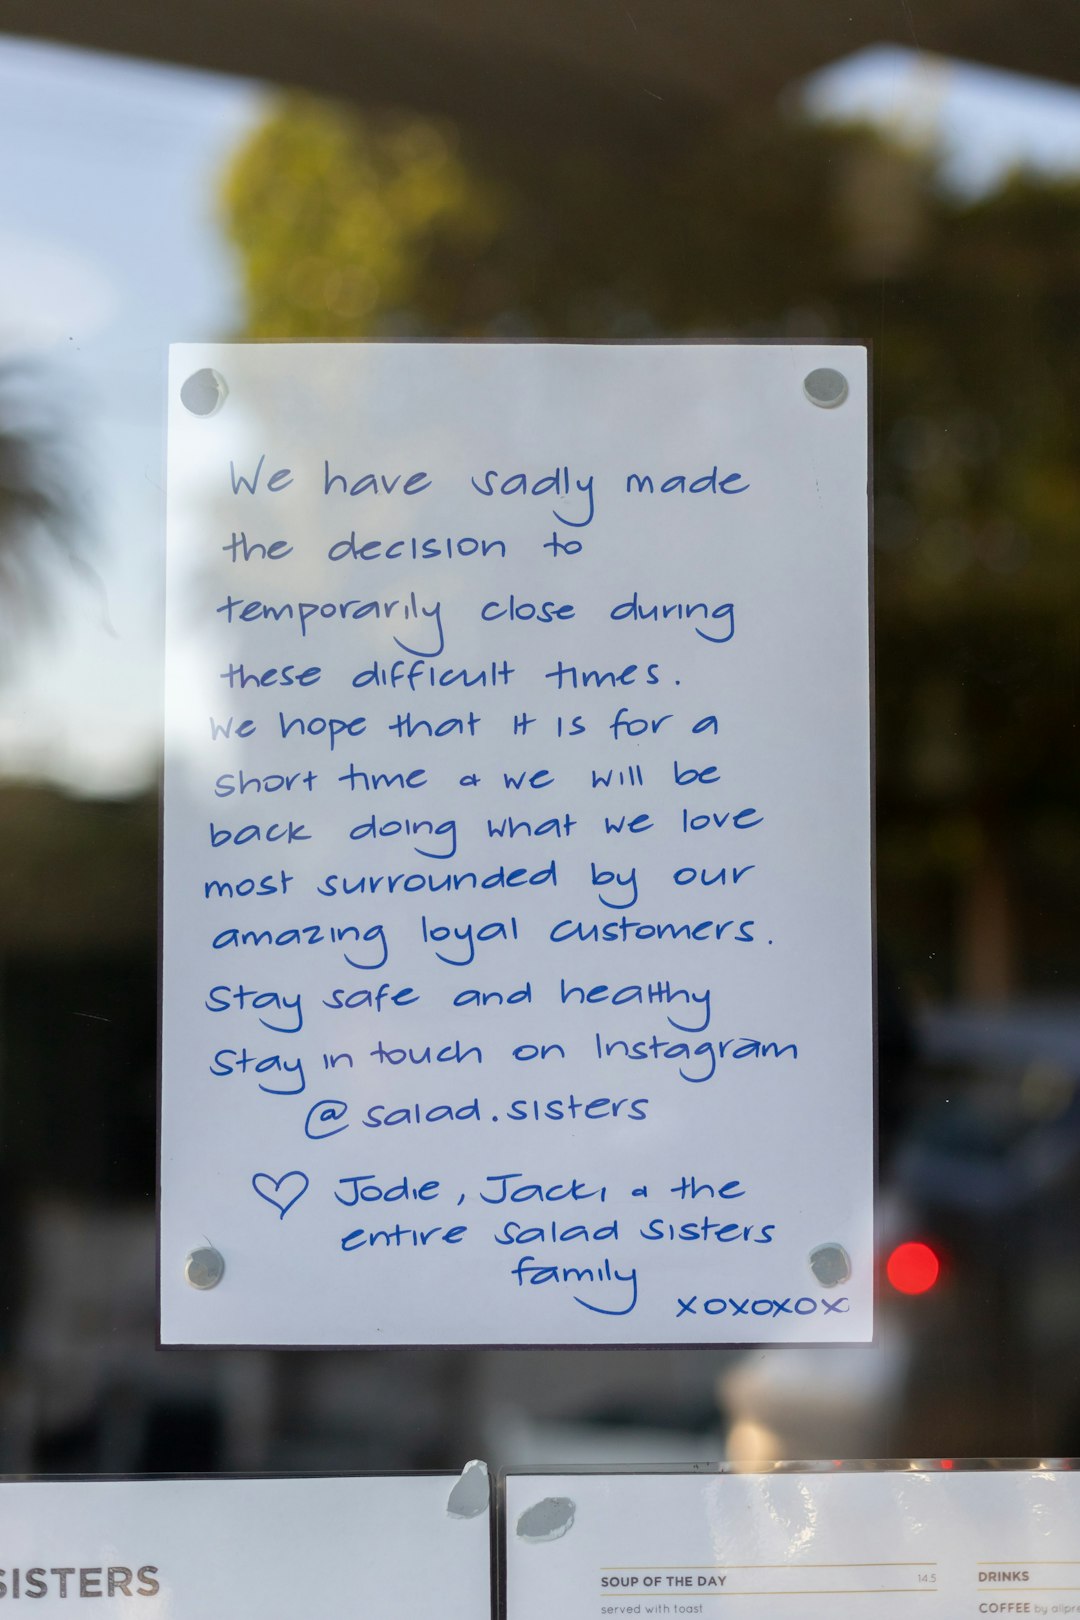 We have sadly made
the decision to
temporarily close during
these difficult times.
We hope that it is for a
short time & we will be
back doing what we love
most surrounded by our
amazing loyal customers.
Stay safe and healthy
Stay in touch on Instagram
@salad.sisters
♡ Jodie, Jacki & the
entire Salad Sisters
family
xoxoxox
SISTERS
SOUP OF THE DAY 14.5
served with toast
DRINKS
COFFEE by allpre